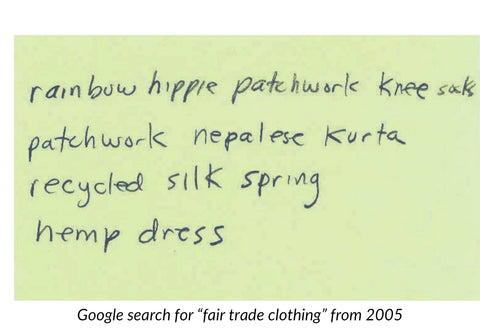 rainbow hippie patchwork knee soks
patchwork nepalese kurta
recycled silk spring
hemp dress
Google search for “fair trade clothing” from 2005